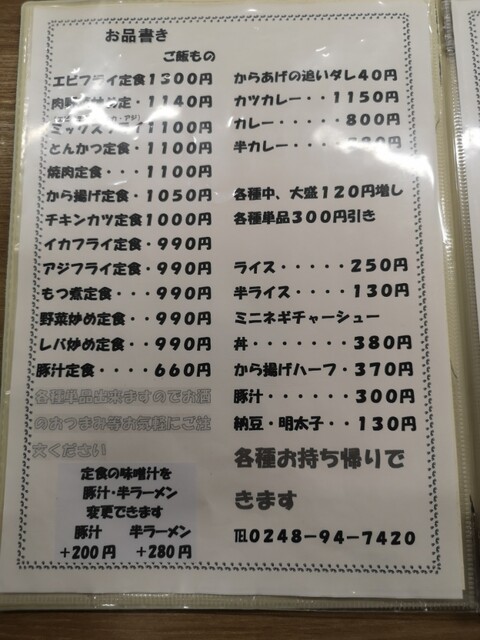 お品書き
ご飯もの
エビフライ定食1300円
肉野菜炒め定・1140円
ミックスフライ1100円
とんかつ定食・1100円
焼肉定食・・・1100円
から揚げ定食・1050円
チキンカツ定食1000円
イカフライ定食・990円
アジフライ定食・990円
もつ煮定食・・・990円
野菜炒め定食・・990円
レバ炒め定食・・990円
豚汁定食・・・・660円
各種単品出来ますのでお酒
のおつまみ等お気軽にご注
文ください
定食の味噌汁を
豚汁・半ラーメン
変更できます
豚汁 半ラーメン
+200円 +280円
からあげの追いダレ40円
カツカレー・・1150円
カレー・・・・・800円
半カレー・・・
各種中、大盛120円増し
各種単品300円引き
ライス・・・・・250円
半ライス・・・・130円
ミニネギチャーシュー
丼・・・・・・・380円
から揚げハーフ・370円
豚汁・・・・・・300円
納豆・明太子・・130円
各種お持ち帰りで
きます
℡0248-94-7420